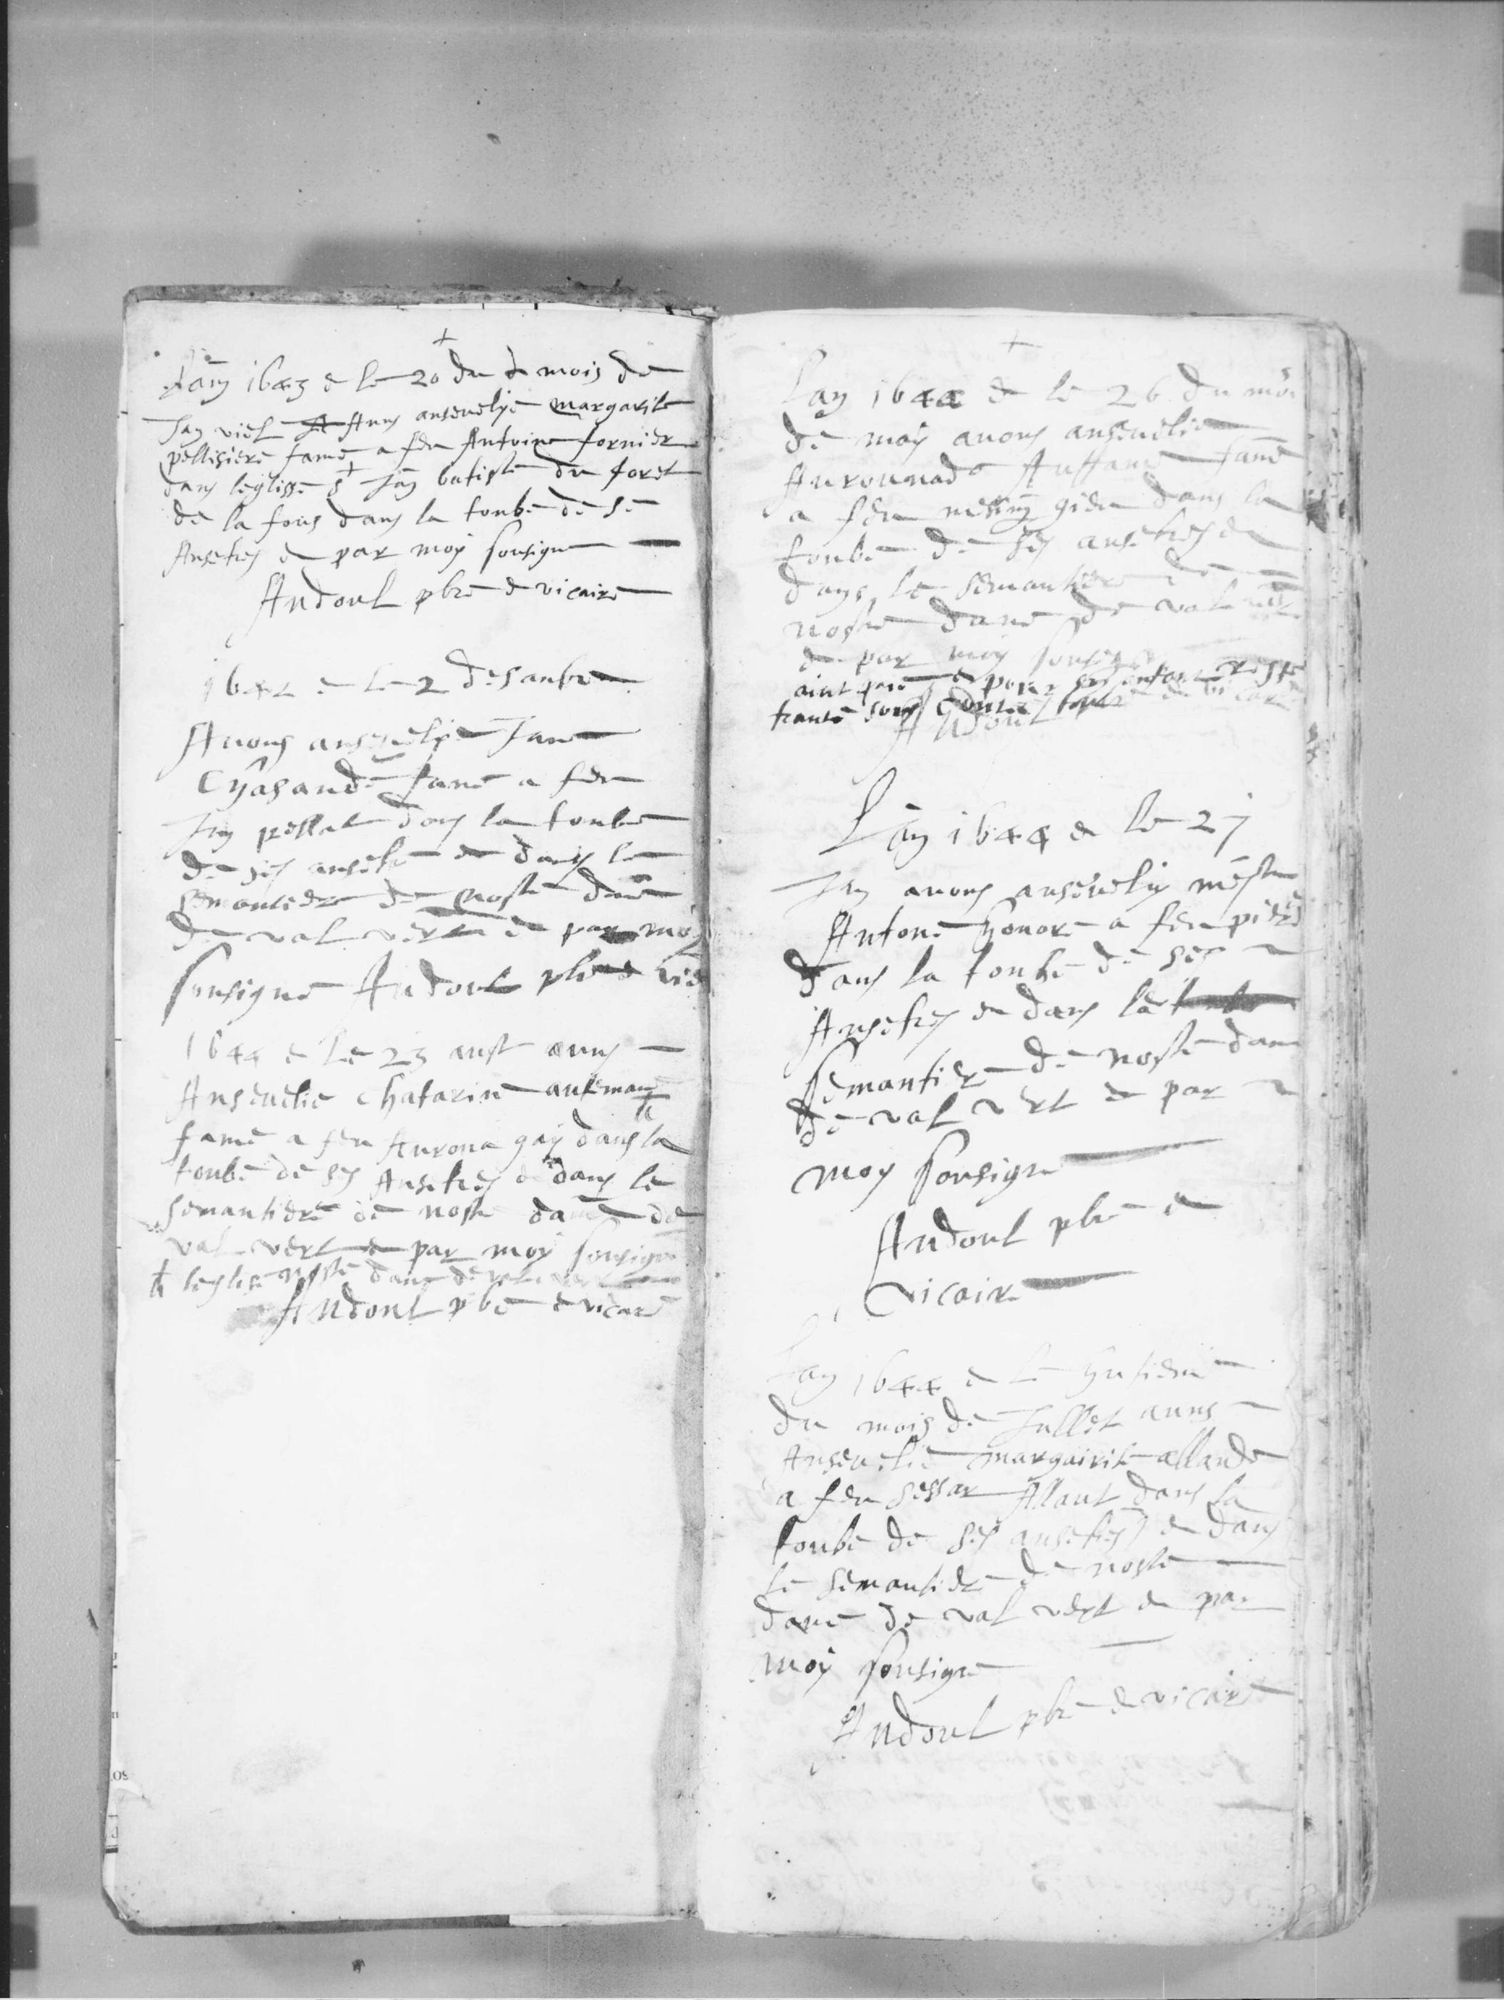 +
Lan 1643 e le 20 du mois de
Janviel Avns ansevelye margarite
pellisiere fame a feu Antoine fornier
dans leglisse St Jan batiste du foret
de la fous dans la tonbe de se
Ansetres e par moy sousigne
Andoul pbre e vicaire
164 e le 2 desanbre
Avons ansevelye Jane
Chasaude fame a feu
Jan pellat dans la tonbe
de ses ansetre e dans le
semantiere de nostre dame
de val vert e par moy
sousigne Andoul pbre e vic
1644 e le 23 aust avns
Ansevelie Chatarine auteman
fame a feu Aurona gay dans la
tonbe de ses Ansetres e dans le
semantiere de nostre dame de
val vert e par moy sousigne
leglise nostre dame de val vert
Andoul pbre e vicare
+
Lan 1644 e le 26 du moi
de may avons ansevelie
Auffane fame
a feu gieu dans la
tonbe de ses ansetres e
dans le semantiere de
nostre dame de val vert
e par moy sousigne
Andoul pbre e vicaire
Lan 1644 e le 27
Jun avons ansevely mestre
Antone honore a feu piere
dans la tonbe de ses
Ansetres e dans le
semantiere de nostre dame
de val vert e par
moy sousigne
Andoul pbre e
vicaire
Lan 1644 e le hutieme
du mois de Jullet avns
Ansevelie margairite allande
a feu sessar Allaut dans la
tonbe de ses ansetres e dans
le semantiere de nostre
dame de val vert e par
moy sousigne
Andoul pbre e vicaire